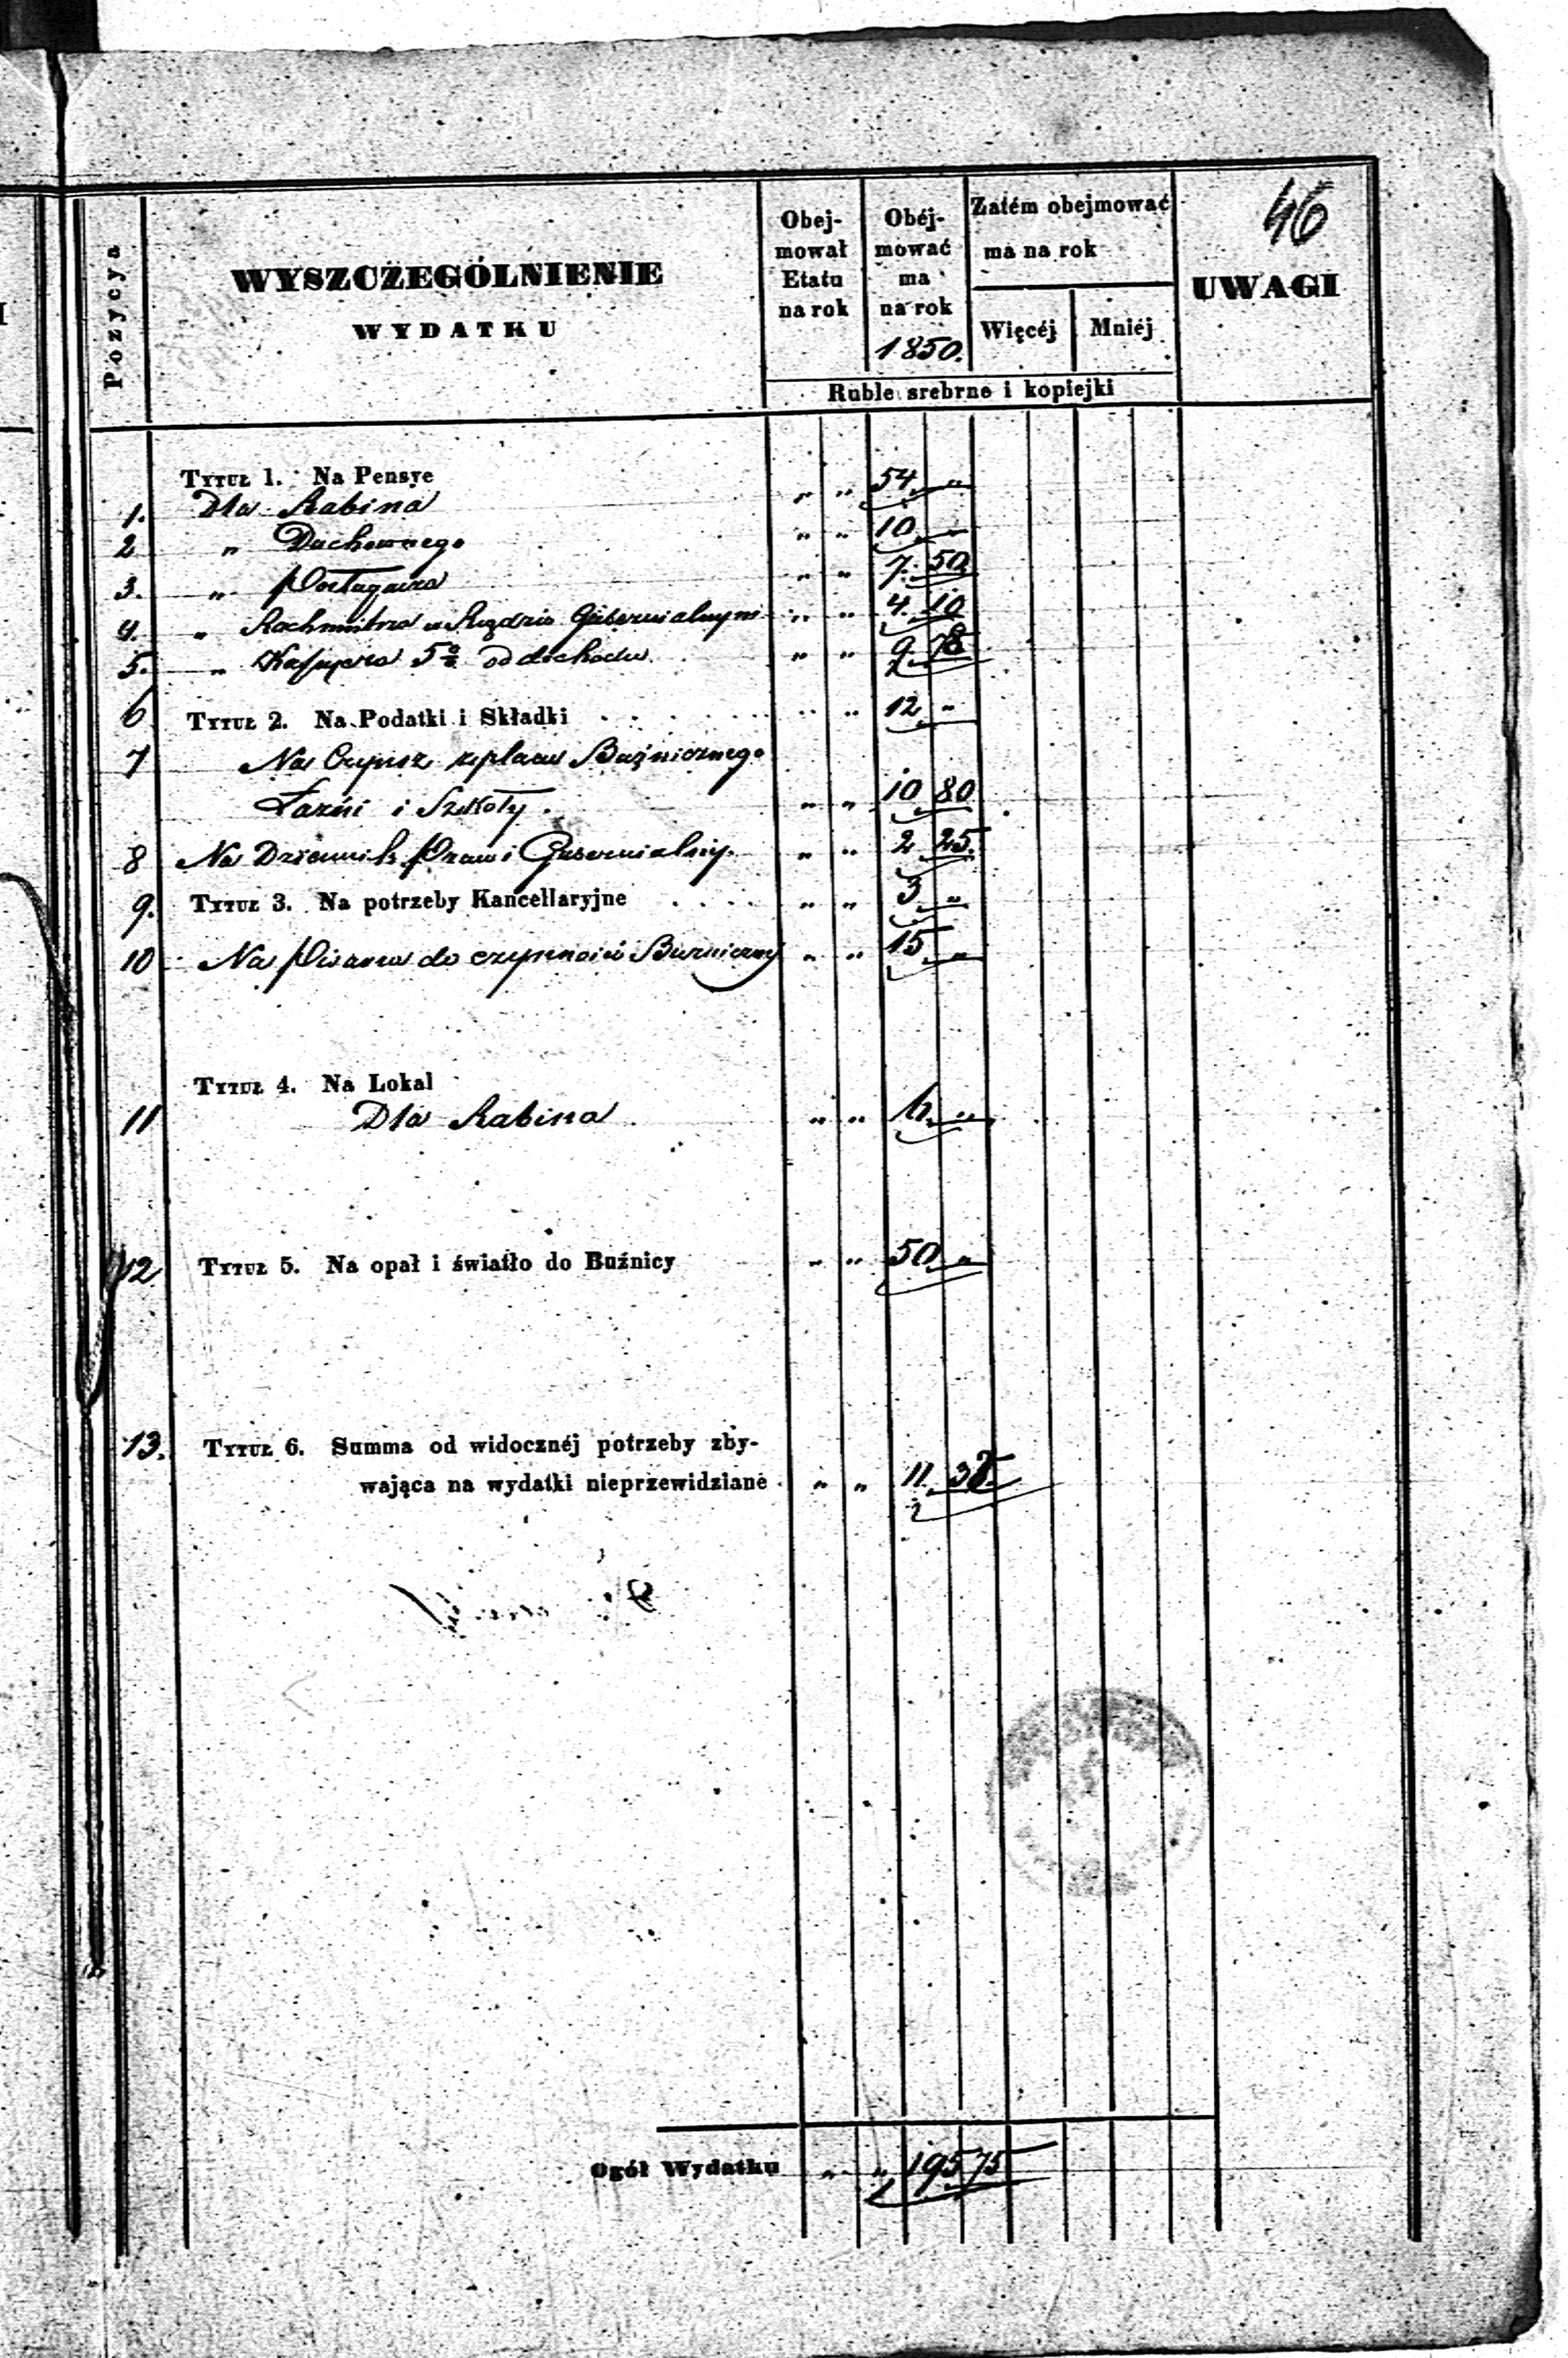 46
Pozycya
WYSZCZEGÓLNIENIE
WYDATKU
Obej-
mował
Etatu
na rok
Obéj-
mować
ma
na rok
1850.
Zatém obejmować
ma na rok
Więcéj Mniéj
UWAGI
Ruble srebrne i kopiejki
TYTUŁ 1. Na Pensye
1. Dla Rabina " " 54 "
2 " Duchownego " " 10 "
3. " " " 7. 50
4. " w Rządzie Gubernialnym " " 4. 10
5. " Kassyera 5% od dochodu " "
6 TYTUŁ 2. Na Podatki i Składki . . . . . . " " 12 "
7 Na Czynsz z placu Buźnicznego
Łaźni i Szkoły. " " 10 80
8 Na Dziennik Praw i Gubernialny. " " 2 25.
9. TYTUŁ 3. Na potrzeby Kancellaryjne . . . . " " 3. "
10 Na Pisarza do czynności " " 15. "
TYTUŁ 4. Na Lokal
11 Dla Rabina " " "
12 TYTUŁ 5. Na opał i światło do Buźnicy " " 50. "
13. TYTUŁ 6. Summa od widocznéj potrzeby zby-
wająca na wydatki nieprzewidziane . " " 11. 32
Ogół Wydatku " " 195 75